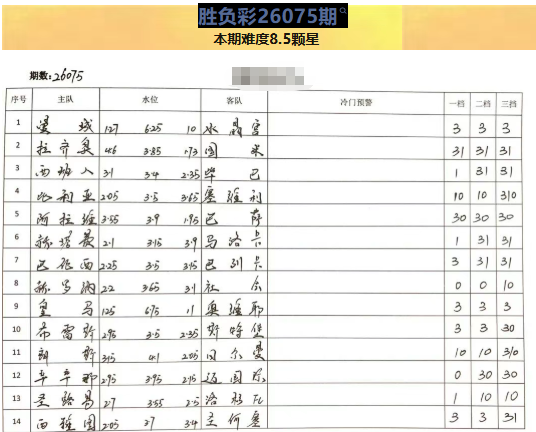 胜负彩26075期
本期难度8.5颗星
期数:26075
序号 主队 水位 客队 冷门预警 一档 二档 三档
1 曼城 127 625 10 水晶宫 3 3 3
2 拉齐奥 4.6 3.85 1.73 国米 31 31 31
3 西班人 3.1 3.4 2.35 毕巴 1 31 31
4 比利亚 2.05 3.5 3.65 塞维利 10 10 310
5 阿拉维 3.55 3.9 1.95 巴萨 30 30 30
6 赫塔费 2.1 3.15 3.9 马洛卡 1 31 31
7 巴伦西 2.25 3.5 3.15 巴列卡 3 31 31
8 赫罗纳 2.2 3.65 3.1 社会 0 0 10
9 皇马 125 675 11 奥维耶 3 3 3
10 布雷斯 2.95 3.5 2.35 斯特堡 3 3 30
11 朗斯 3.15 4.1 2.05 贝尔曼 10 10 310
12 辛辛那 2.95 3.95 2.15 迈国际 0 30 30
13 圣路易 2.7 3.55 2.5 洛杉FC 1 10 10
14 西雅图 2.05 3.7 3.4 圣何塞 3 3 31